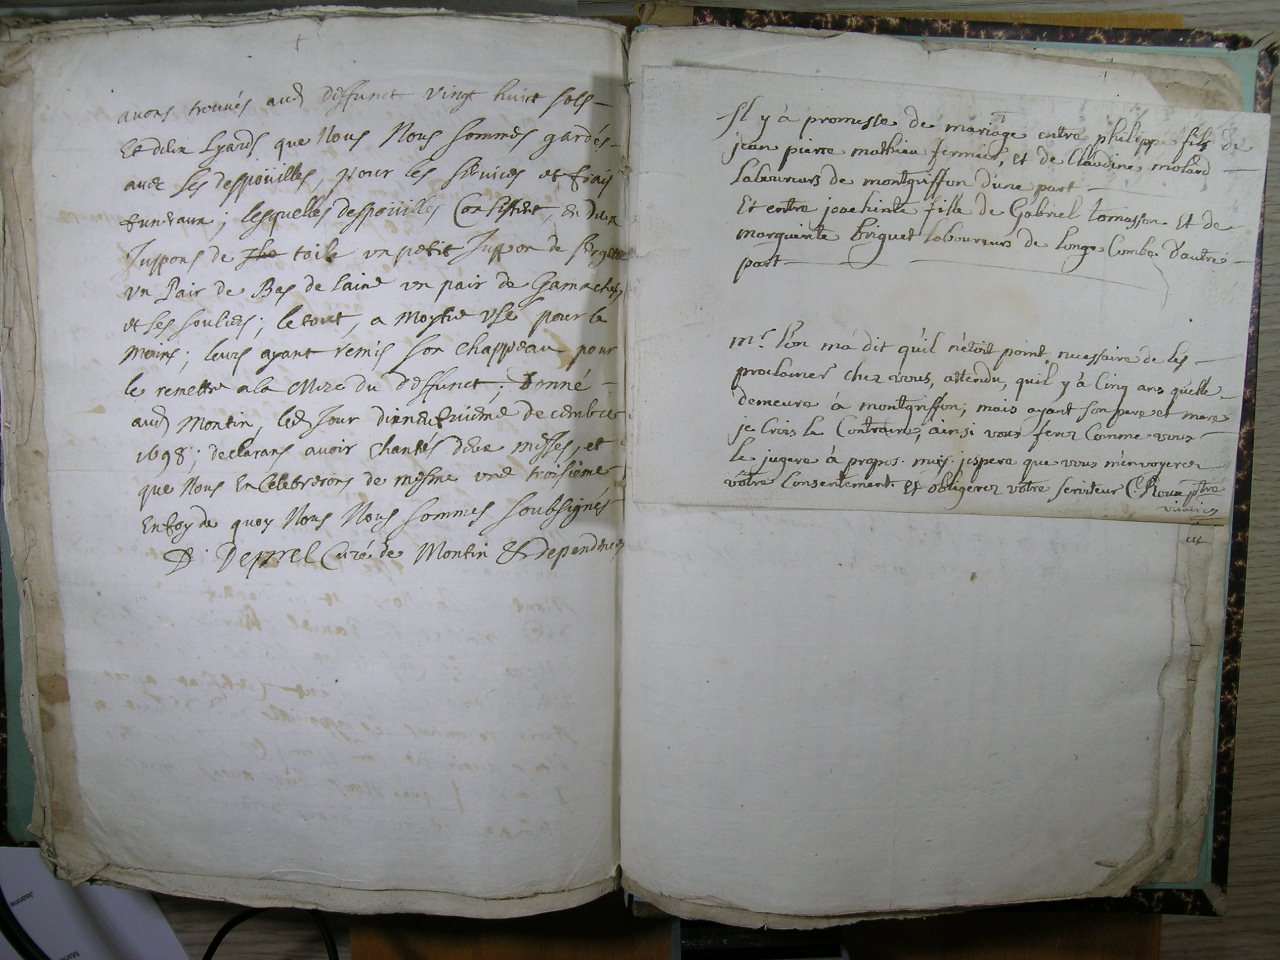 avons trouvés aud deffunct vingt huict sols
Et deux Lyards que Nous Nous sommes gardés
avec ses despoüilles, pour les services et frais
funeraux; lesquelles despoüilles Consistent en deux
Juppons de toile un petit Juppon de
un Pair de Bas de laine un pair de Gamaches
et ses souliers; le tout, a moytie usé pour le
moins; leurs ayant remis son chappeau pour
le remettre a la Mere du deffunct; Donné
aud Montin, led Jour dixneufvieme decembre
1698; declarans avoir chantés deux messes, et
que Nous En Celebrerons de mesme une troisieme
En foy de quoy Nous Nous sommes soubsignés
D: Deprel Curé de Montin & dependences
Il y à promesse de mariage entre philippe fils de
jean pierre mathieu fermier, et de Claudine molard
laboureurs de montgriffon d'une part
Et entre joachinte fille de Gabriel tomasson et de
marguerite briguet laboureurs de longe Combe d'autre
part
mr. l'on m'a dit qu'il n'etoit point necessaire de les
proclamer chez vous, attendu, qu'il y à Cinq ans qu'elle
demeure à montgriffon, mais ayant son pere et mere
je Crois le Contraire, ainsi vous ferez Comme vous
le jugere à propos. mais j'espere que vous m'envoyerez
votre Consentement et obligerez votre serviteur C Roux ptre
vicaire